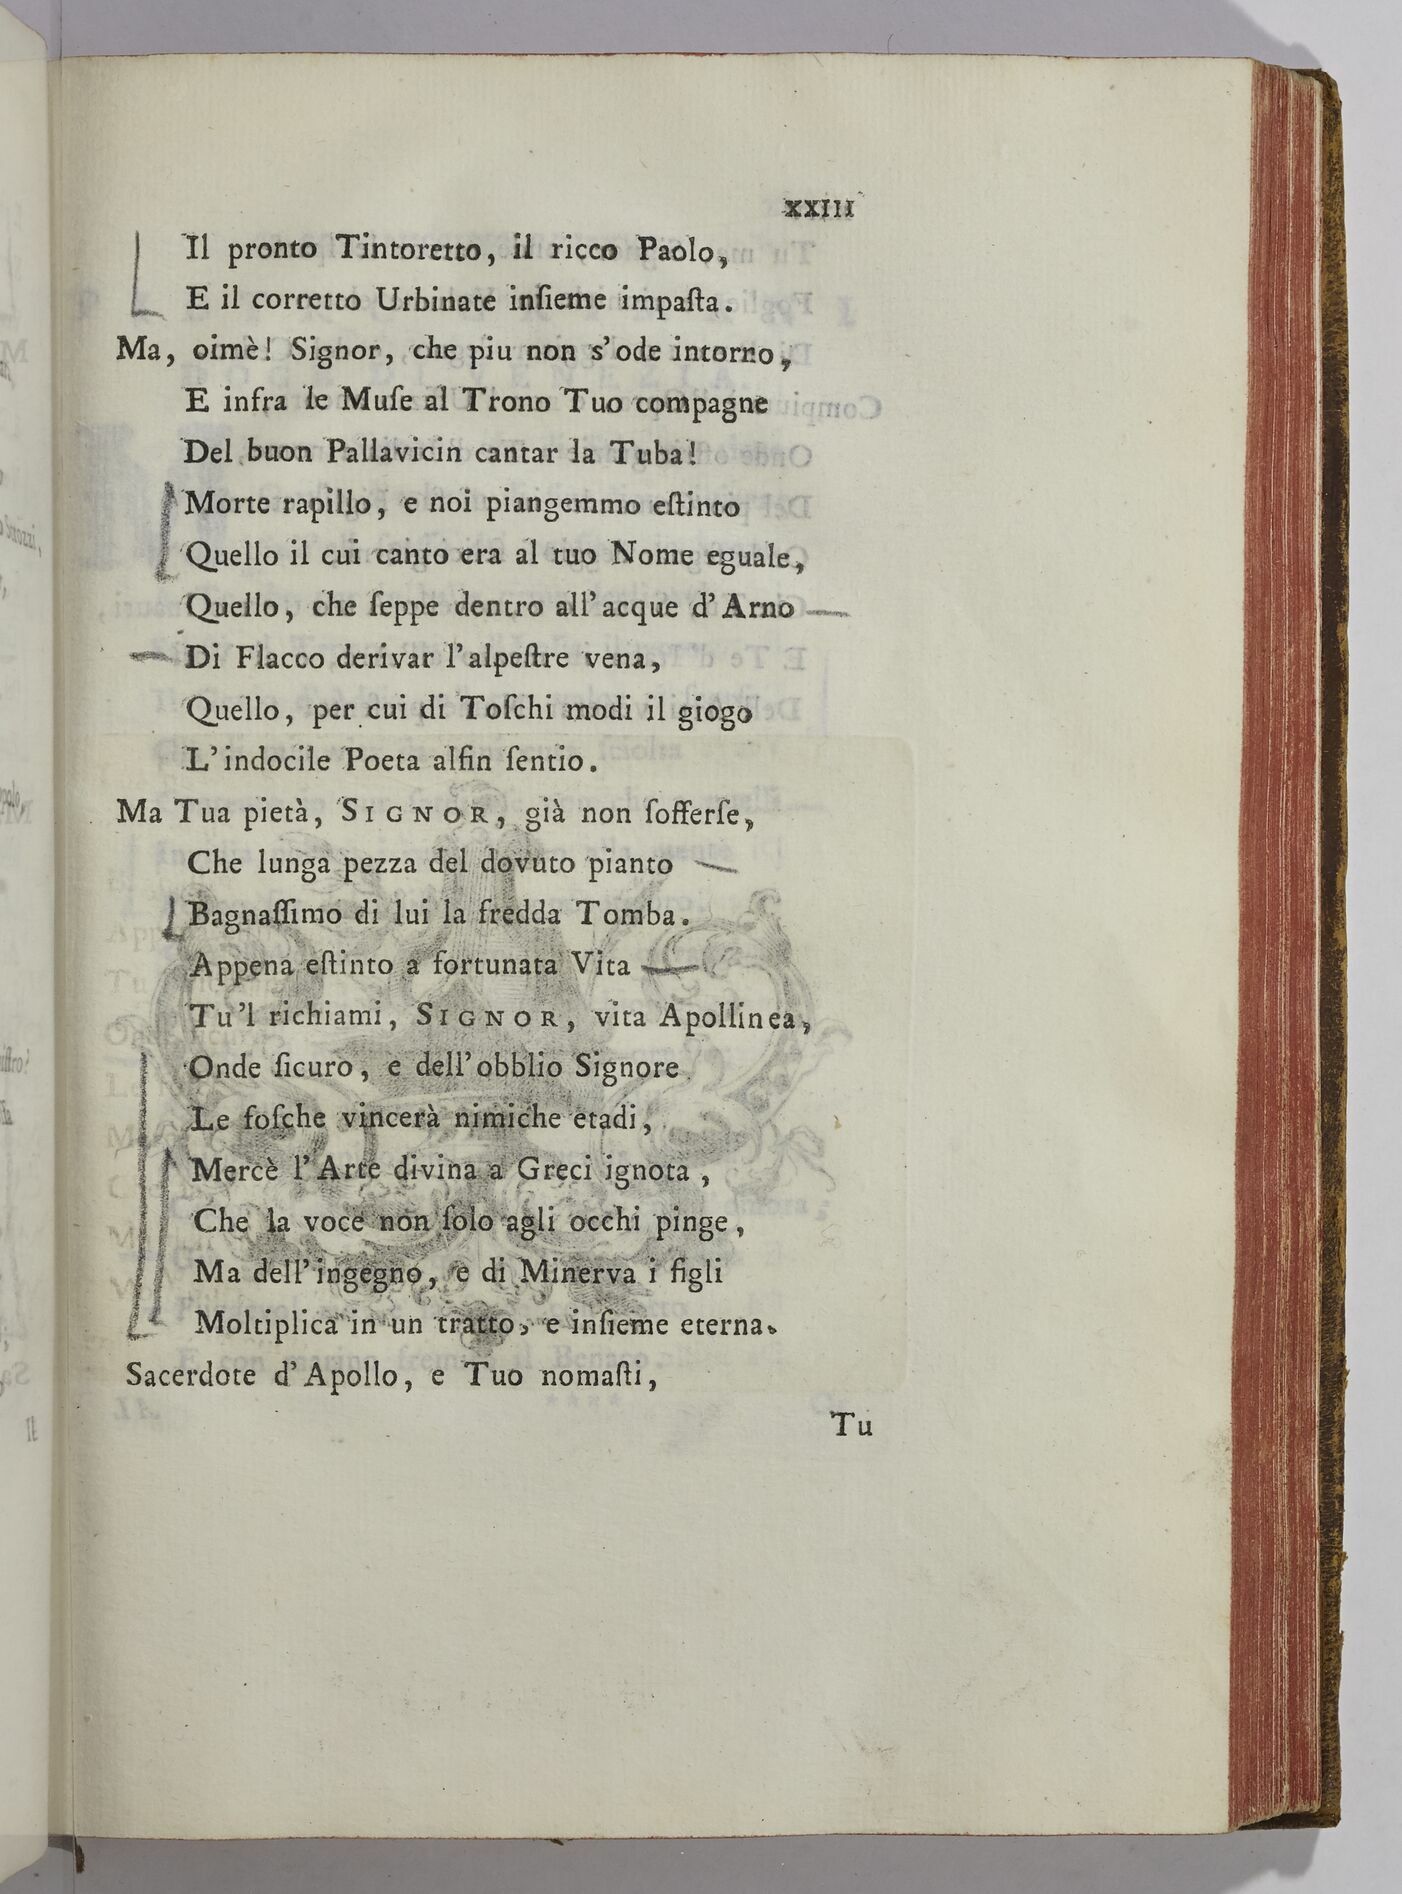 XXIII
Il pronto Tintoretto, il ricco Paolo,
E il corretto Urbinate inſieme impaſta.
Ma, oimè! Signor, che piu non s'ode intorno,
E infra le Muſe al Trono Tuo compagne
Del buon Pallavicin cantar la Tuba!
Morte rapillo, e noi piangemmo eſtinto
Quello il cui canto era al tuo Nome eguale,
Quello, che ſeppe dentro all'acque d'Arno
Di Flacco derivar l'alpeſtre vena,
Quello, per cui di Toſchi modi il giogo
L'indocile Poeta alfin ſentio.
Ma Tua pietà, SIGNOR, già non ſofferſe,
Che lunga pezza del dovuto pianto
Bagnaſſimo di lui la fredda Tomba.
Appena eſtinto a fortunata Vita
Tu'l richiami, SIGNOR, vita Apollinea,
Onde ſicuro, e dell'obblio Signore
Le foſche vincerà nimiche etadi,
Mercè l'Arte divina a Greci ignota,
Che la voce non ſolo agli occhi pinge,
Ma dell'ingegno, e di Minerva i figli
Moltiplica in un tratto, e inſieme eterna.
Sacerdote d'Apollo, e Tuo nomaſti,
Tu